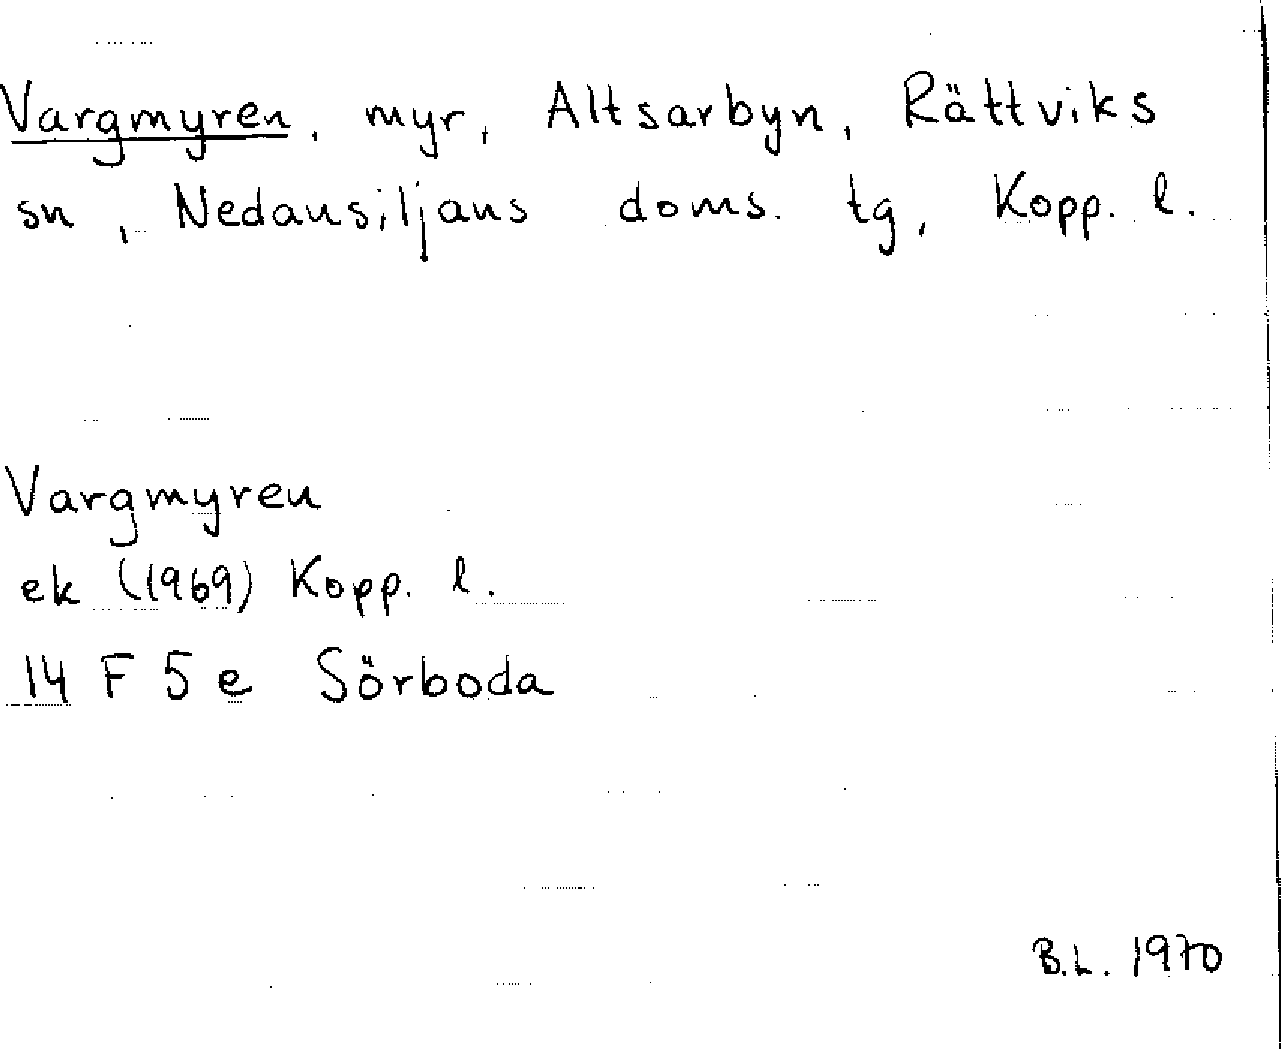 Vargmyren, myr, Altsarbyn, Rättviks
sn, Nedansiljans doms. tg, Kopp. l.
Vargmyren
ek (1969) Kopp. l.
14 F 5 e Sörboda
B.L. 1970